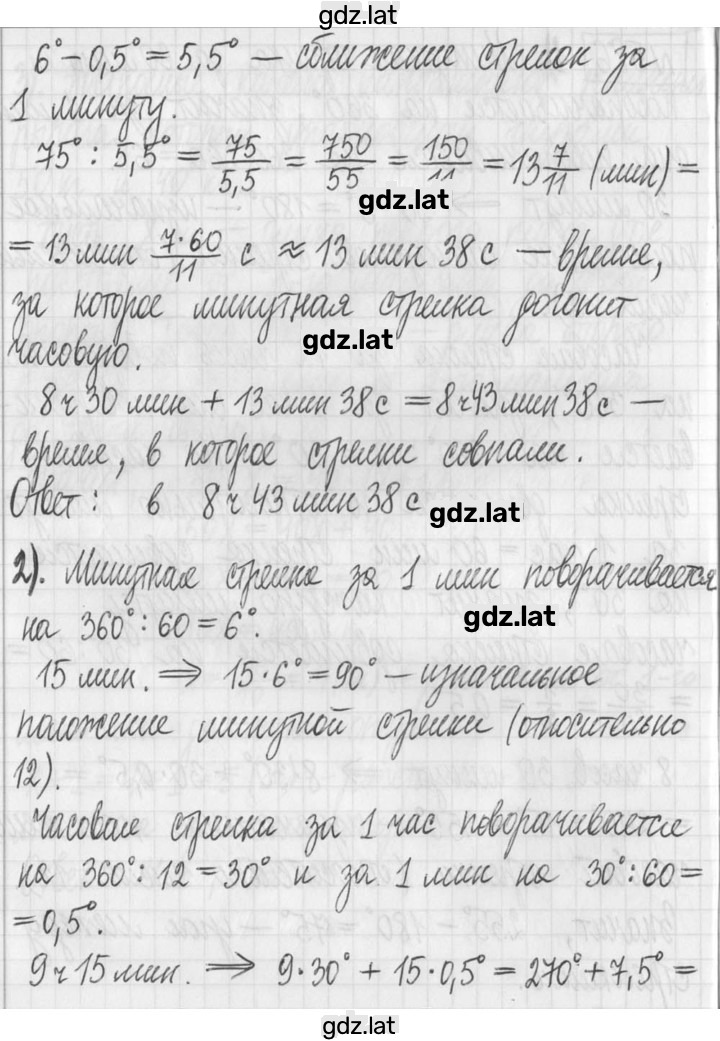 gdz.lat
6° - 0,5° = 5,5° — сближение стрелок за
1 минуту.
75° : 5,5° = 75/5,5 = 750/55 = 150/11 = 13 7/11 (мин) =
gdz.lat
= 13 мин 7·60/11 с ≈ 13 мин 38 с — время,
за которое минутная стрелка догонит
gdz.lat
часовую.
8 ч 30 мин + 13 мин 38 с = 8 ч 43 мин 38 с —
время, в которое стрелки совпали.
Ответ: в 8 ч 43 мин 38 с
gdz.lat
2). Минутная стрелка за 1 мин поворачивается
на 360° : 60 = 6°.
gdz.lat
15 мин. ⇒ 15·6° = 90° — изначальное
положение минутной стрелки (относительно
12).
Часовая стрелка за 1 час поворачивается
на 360° : 12 = 30° и за 1 мин на 30° : 60 =
= 0,5°.
9 ч 15 мин. ⇒ 9·30° + 15·0,5° = 270° + 7,5° =
gdz.lat